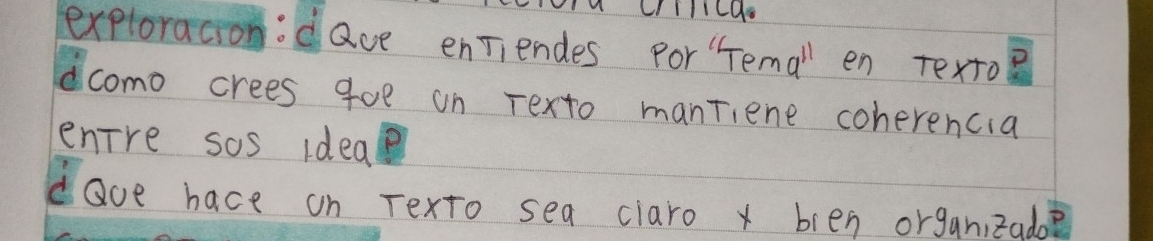 crítica.
exploracion: ¿Que entiendes por "Tema" en Texto?
¿como crees que un Texto mantiene coherencia
entre sus idea?
¿Que hace un Texto sea claro y bien organizado?